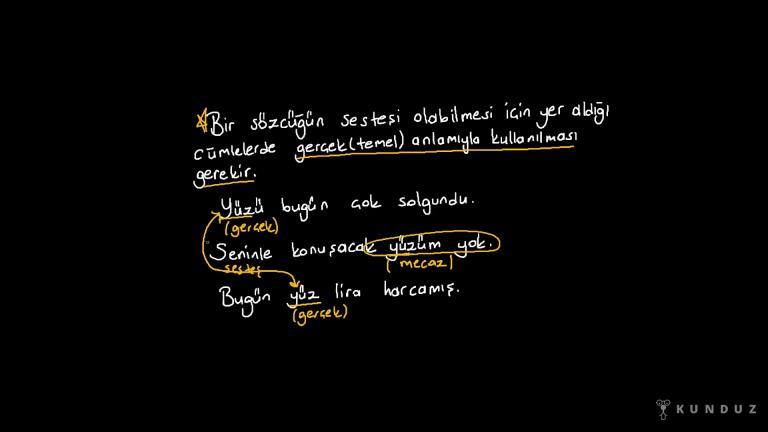 Bir sözcüğün sesteşi olabilmesi için yer aldığı
cümlelerde gerçek (temel) anlamıyla kullanılması
gerekir.
Yüzü bugün çok solgundu.
(gerçek)
Seninle konuşacak yüzüm yok.
sesteş (mecaz)
Bugün yüz lira harcamış.
(gerçek)
KUNDUZ